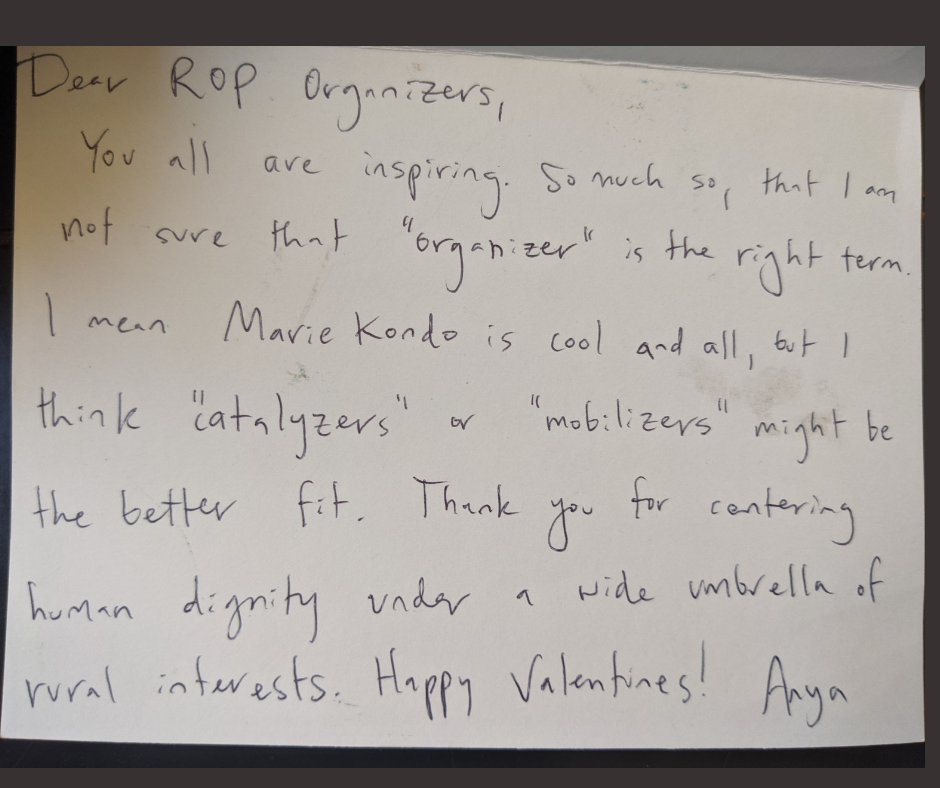 Dear ROP Organizers,
You all are inspiring. So much so, that I am
not sure that "organizer" is the right term.
I mean Marie Kondo is cool and all, but I
think "catalyzers" or "mobilizers" might be
the better fit. Thank you for centering
human dignity under a wide umbrella of
rural interests. Happy Valentines! Anya